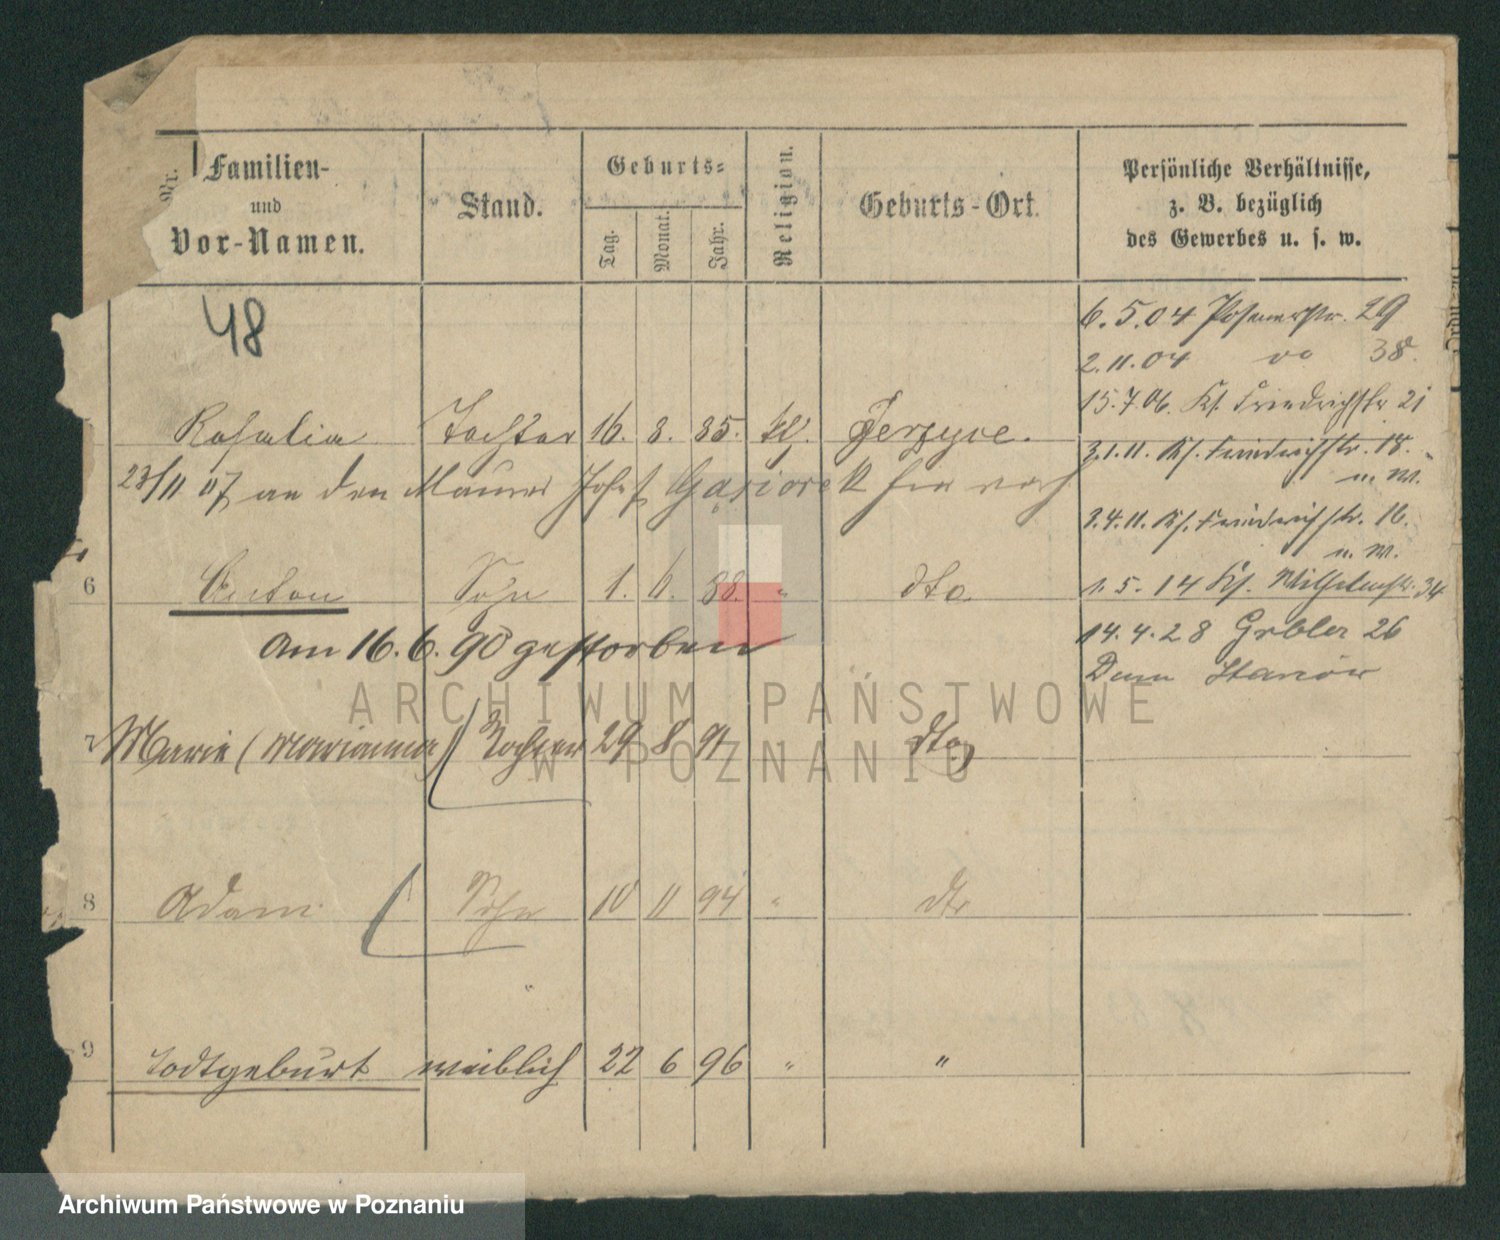 Nr.
Familien-
und
Vor-Namen.
Stand.
Geburts-
Tag.
Monat.
Jahr.
Religion.
Geburts-Ort.
Persönliche Verhältnisse,
z. B. bezüglich
des Gewerbes u. s. w.
48
6.5.04 Posenerstr. 29
2.11.04 do 38.
15.7.06. Ks. Friedrichstr 21
Rosalia Tochter 16. 8. 85. kl. Jerzyce.
3.1.11. Ks. Friedrichstr. 18.
u. W.
23/11 07 an den Maurer Josef Gasiorek
3.4.11. Ks. Friedrichstr. 16.
u. W.
6 Anton Sohn 1. 11. 88. " dto.
1.5.14 Ks. Wilhelmstr. 34
am 16.6.90 gestorben
14.4.28 Grobla 26
7 Marie (Marianna) Tochter 29 8 91 dto,
8 Adam Sohn 10 11 94 " dto
9 Todtgeburt weiblich 22 6 96 " "
ARCHIWUM PAŃSTWOWE
W POZNANIU
Archiwum Państwowe w Poznaniu